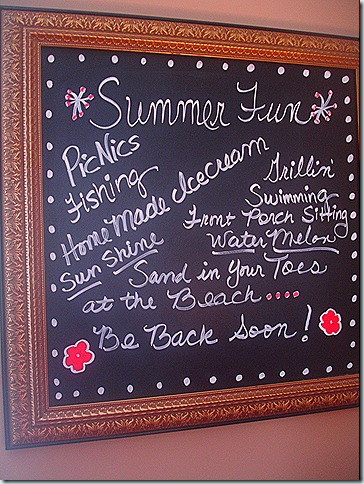 Summer Fun
PicNics
Fishing
Home Made Icecream
Sun Shine
Grillin'
Swimming
Front Porch Sitting
Water Melon
Sand in Your Toes
at the Beach....
Be Back Soon!